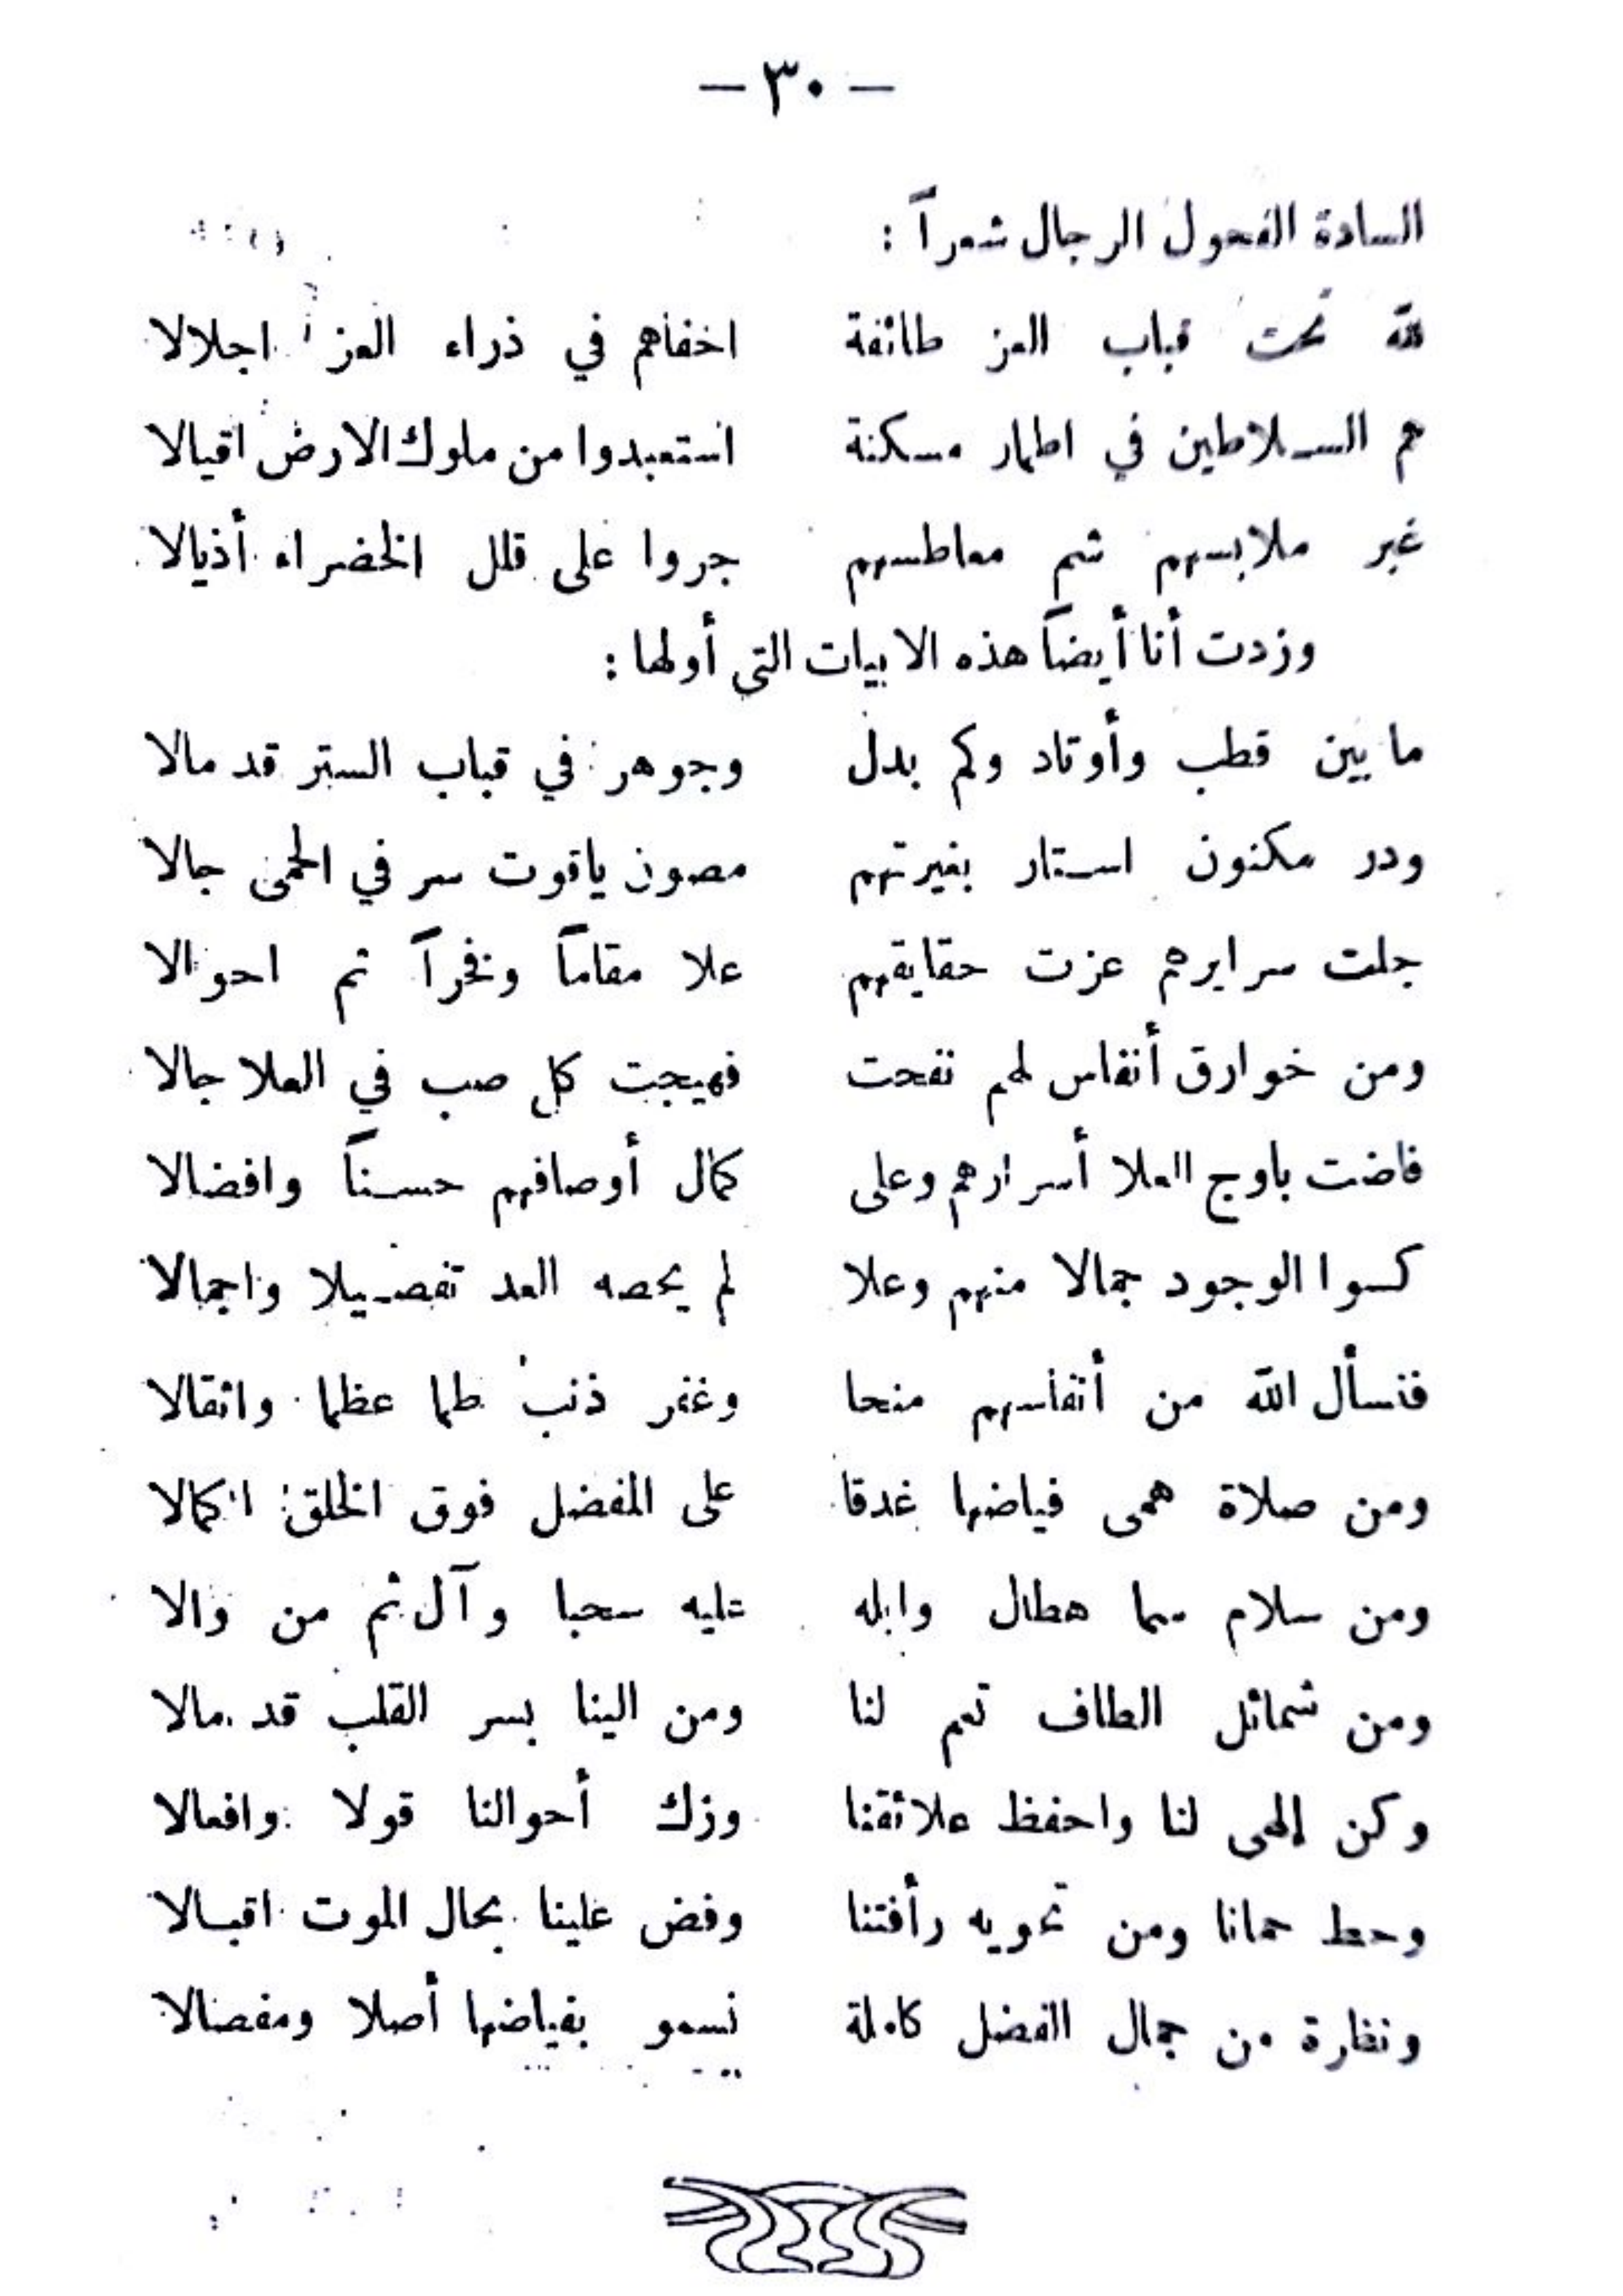 — ٣٠ —
السادة الفحول الرجال شعراً :
لله تحت قباب العز طائفة اخفاهم في ذراء العز اجلالا
هم السلاطين في اطمار مسكنة استعبدوا من ملوك الارض اقيالا
غبر ملابسهم شم معاطسهم جروا على قلل الخضراء أذيالا
وزدت أنا أيضاً هذه الابيات التي أولها :
ما بين قطب وأوتاد وكم بدل وجوهر في قباب الستر قد مالا
ودر مكنون استار بغيرتهم مصون ياقوت سر في الحمى جالا
جلت سرايرهم عزت حقايقهم علا مقاماً وفخراً ثم احوالا
ومن خوارق أنفاس لهم نفحت فهيجت كل صب في العلا جالا
فاضت باوج العلا أسرارهم وعلى كمال أوصافهم حسناً وافضالا
كسوا الوجود جمالا منهم وعلا لم يحصه العد تفصيلا واجمالا
فنسأل الله من أنفاسهم منحا وغفر ذنب طما عظما واثقالا
ومن صلاة همى فياضها غدقا على المفضل فوق الخلق اكمالا
ومن سلام سما هطال وابله عليه سحبا وآل ثم من والا
ومن شمائل الطاف تعم لنا ومن الينا بسر القلب قد مالا
وكن إلهى لنا واحفظ علائقنا وزك أحوالنا قولا وافعالا
وحط حمانا ومن تحويه رأفتنا وفض علينا بحال الموت اقبالا
ونظرة من جمال الفضل كاملة نسمو بفياضها أصلا ومفصالا